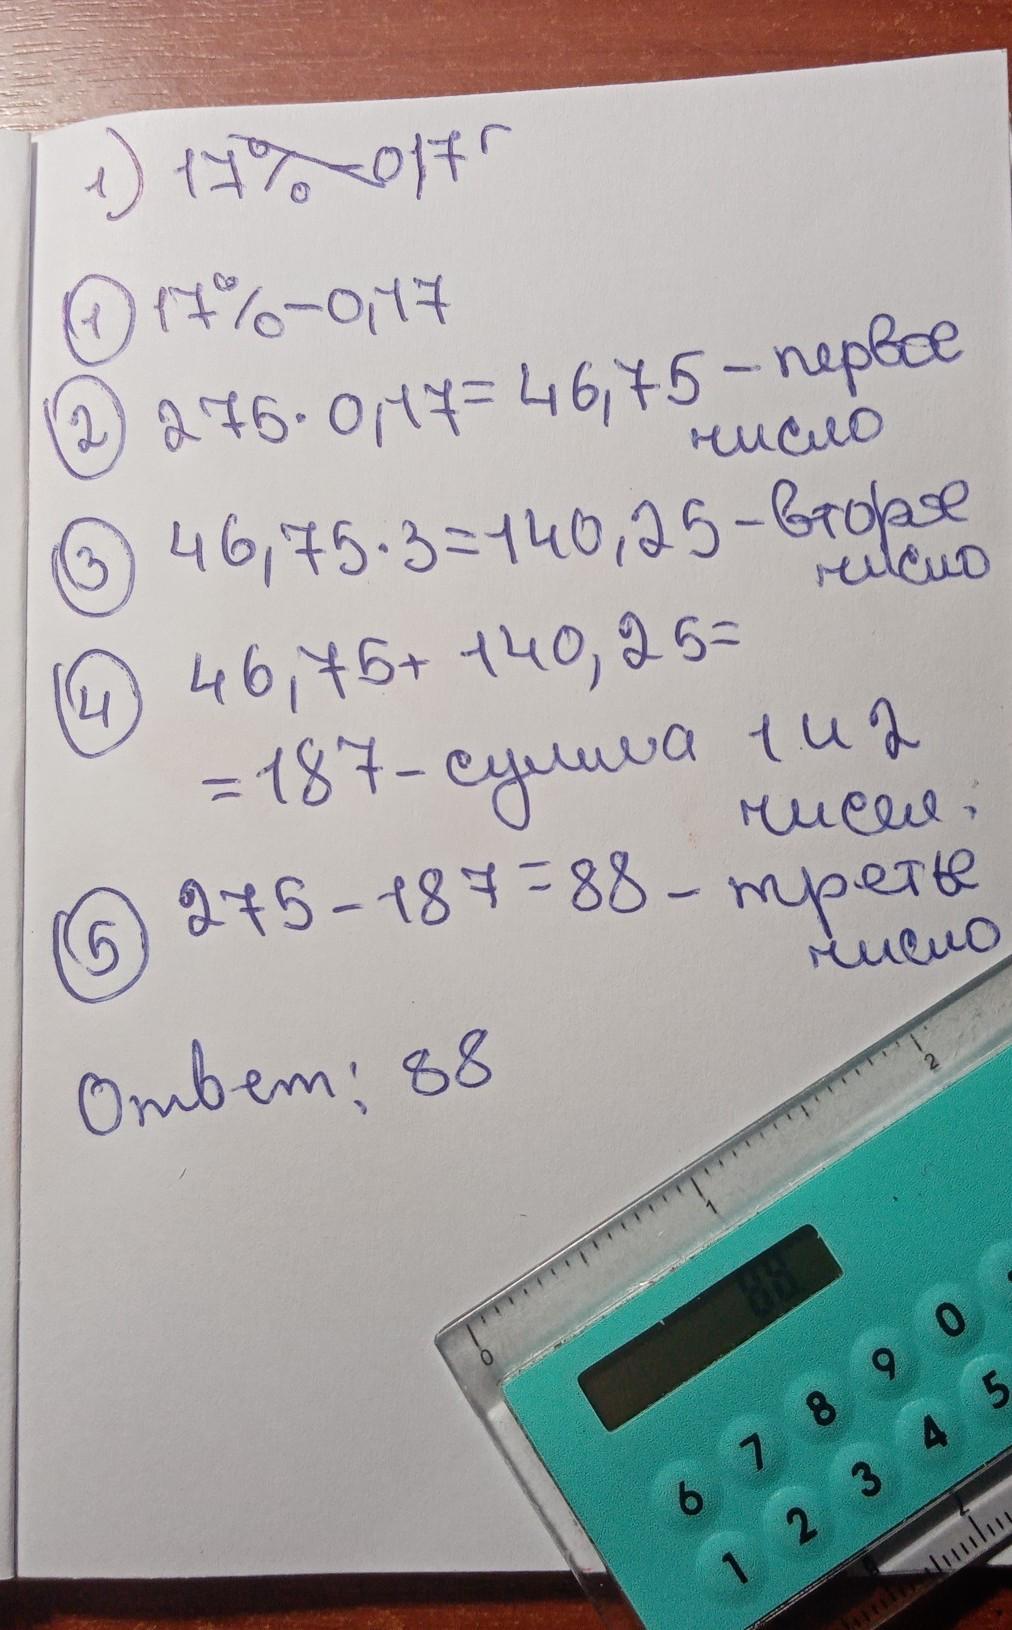 1) 17% 0,17
1 17% - 0,17
2 275 · 0,17 = 46,75 - первое
число
3 46,75 · 3 = 140,25 - второе
число
4 46,75 + 140,25 =
= 187 - сумма 1 и 2
чисел.
5 275 - 187 = 88 - третье
число
Ответ: 88
2
1
0
88
6 7 8 9 0
1 2 3 4 5